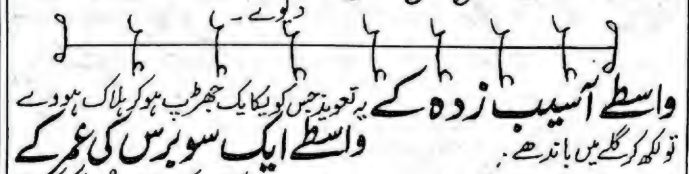 دیوے۔
واسطے آسیب زدہ کے یہ تعویذ جس کو یکایک جھڑپ ہو کر ہلاک ہووے
تو لکھ کر گلے میں باندھے۔ واسطے ایک سو برس کی عمر کے